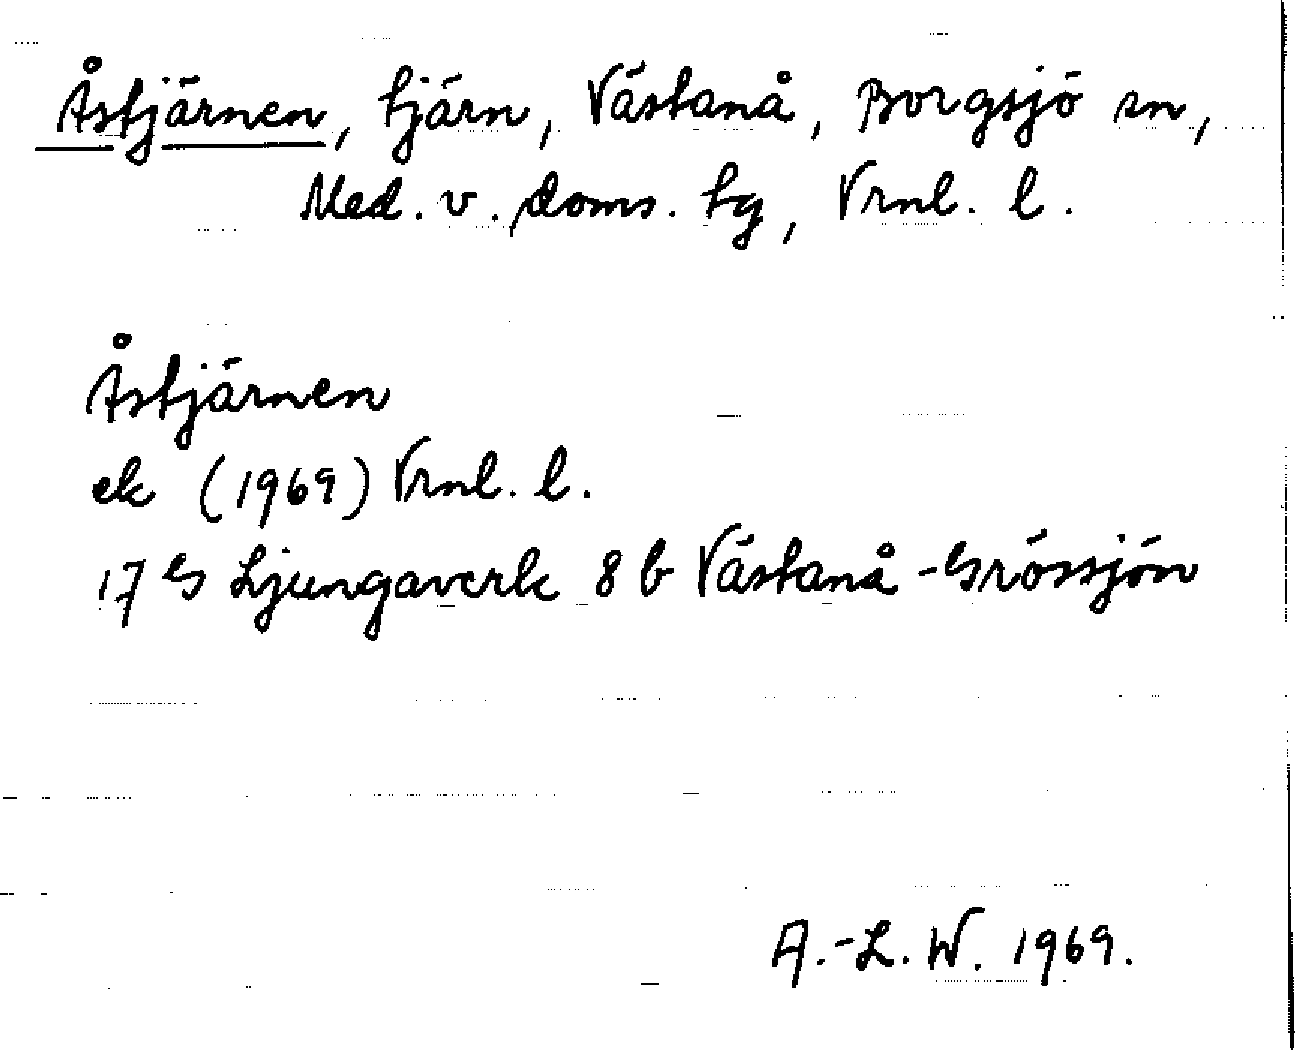 Åstjärnen, tjärn, Västanå, Borgsjö sn,
Med. v. doms. tg, Vrnl. l.
Åstjärnen
ek (1969) Vrnl. l.
17 G Ljungaverk 8 b Västanå-Grössjön
A.-L. W. 1969.